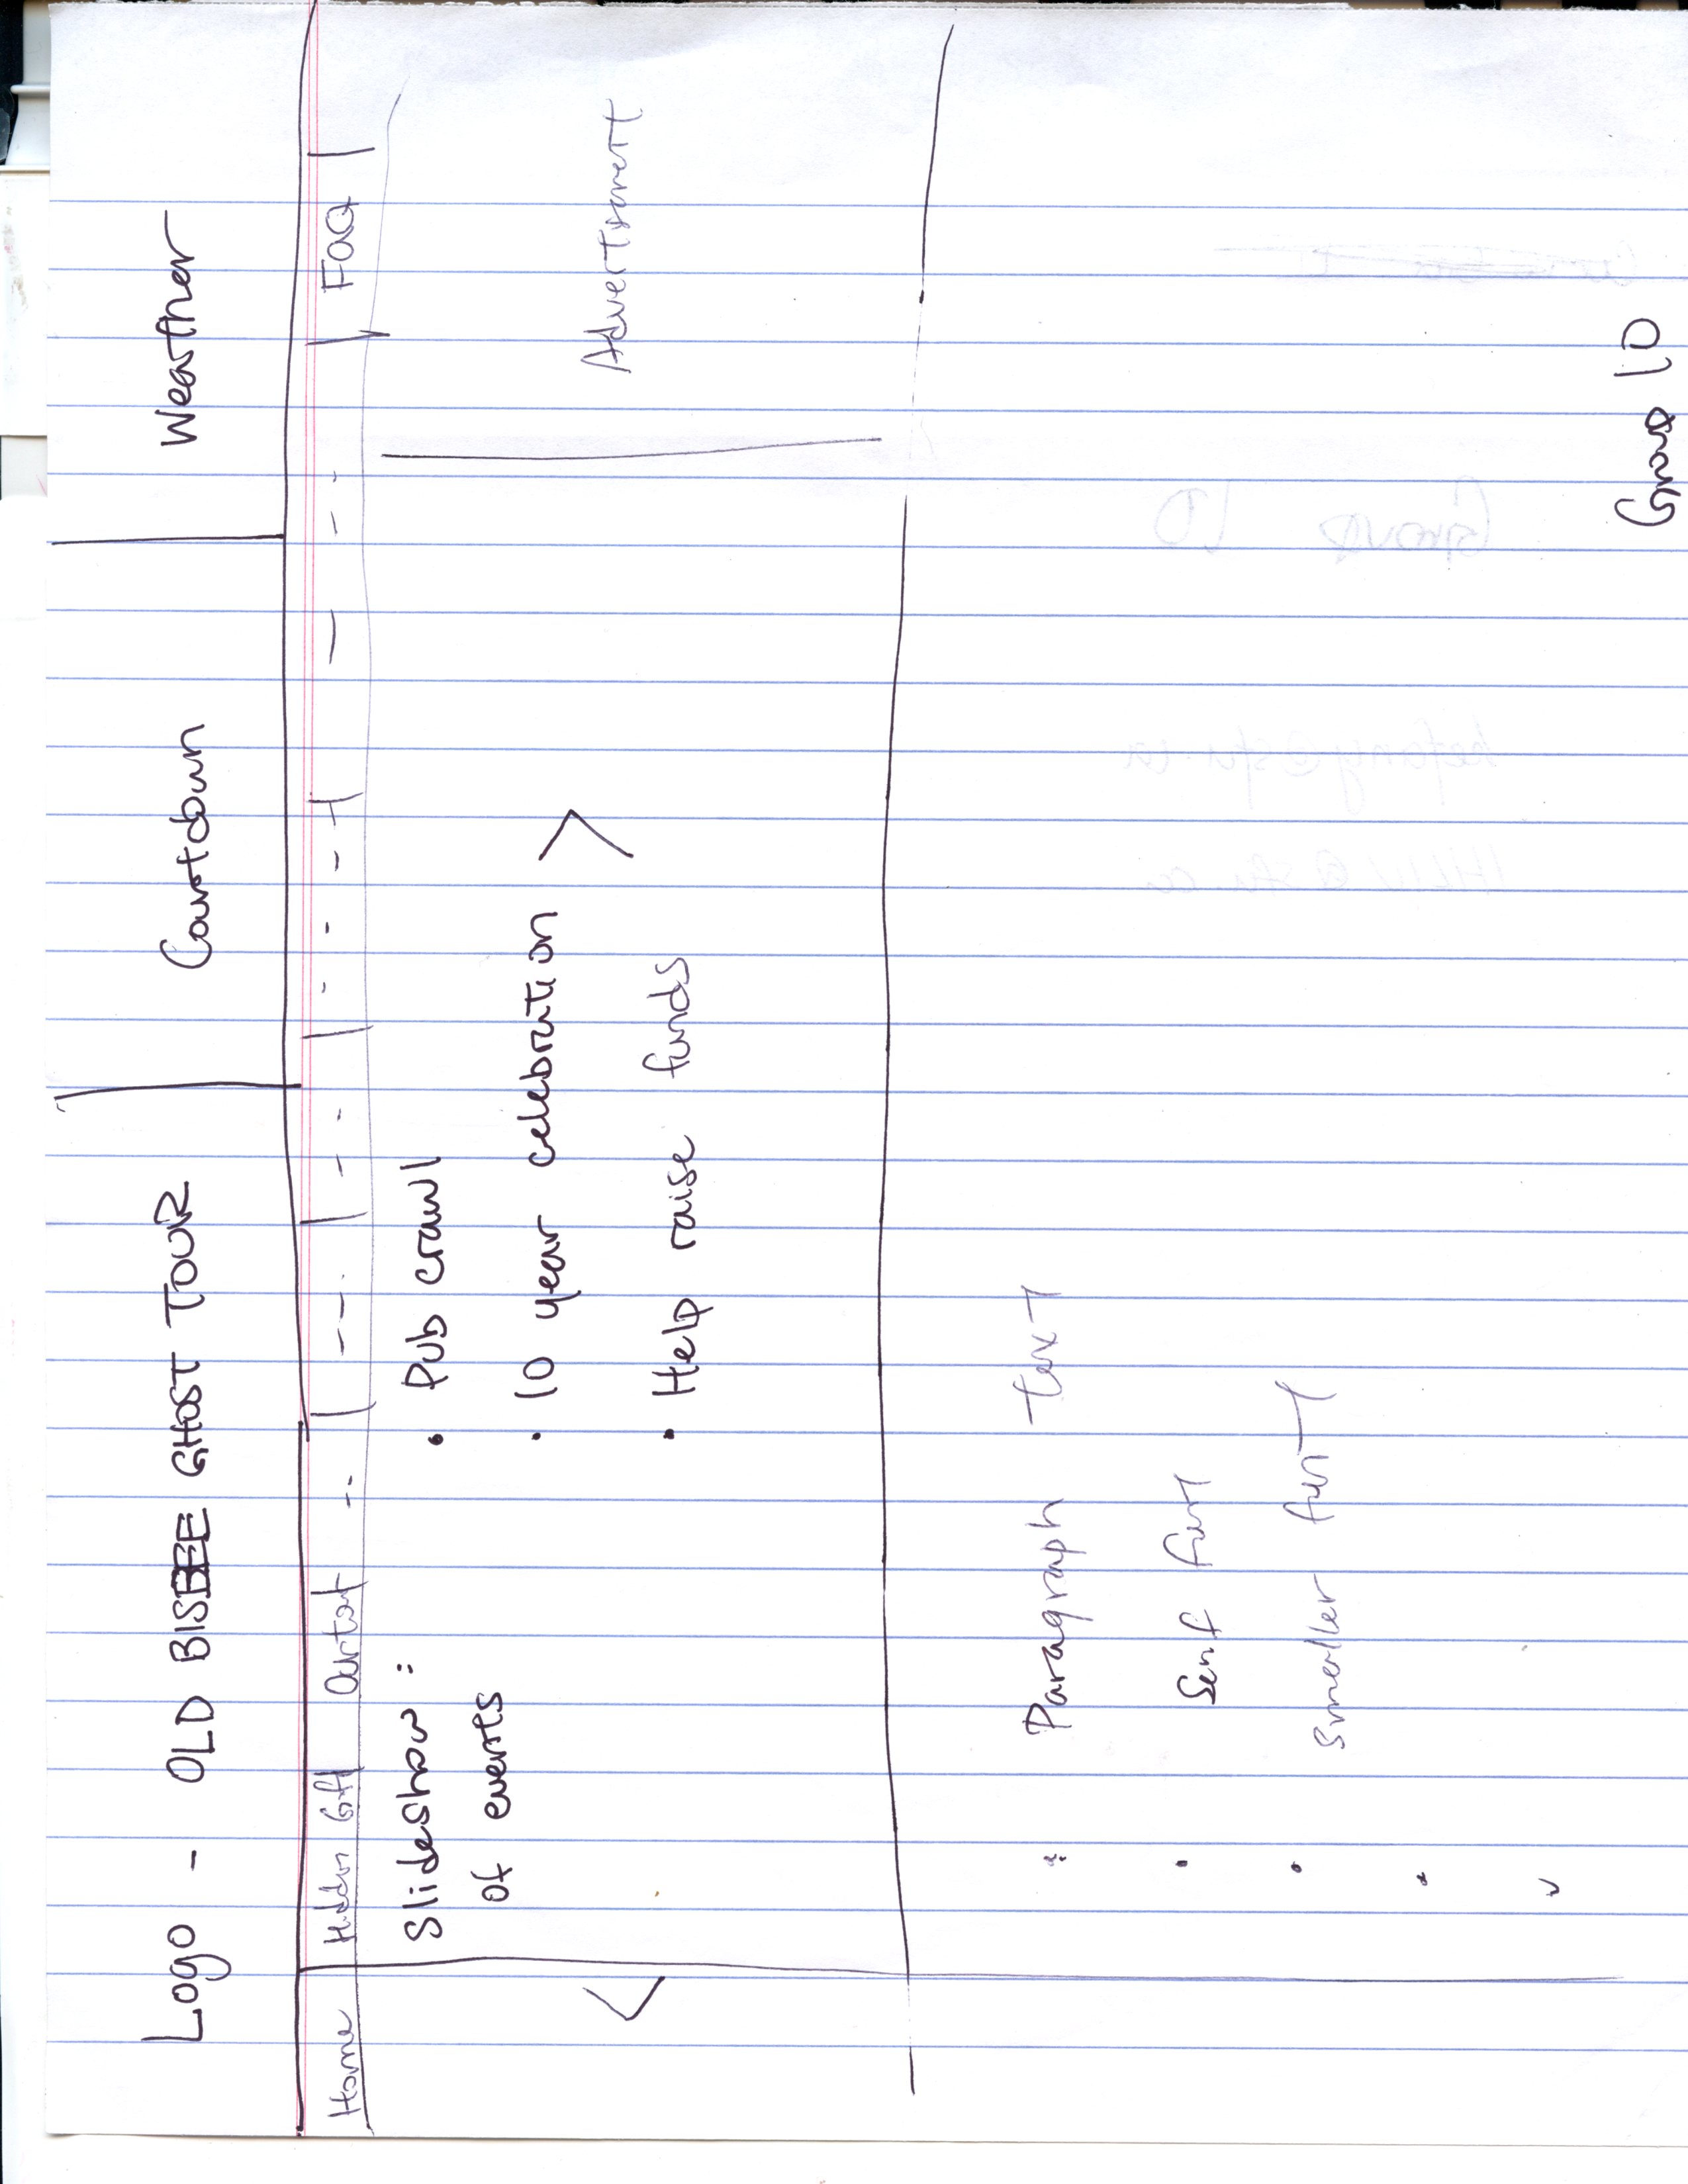 Logo - OLD BISBEE GHOST TOUR
Countdown
Weather
Home
FAQ
Slideshow :
of events
• Pub crawl
• 10 year celebration
• Help raise funds
Advertisment
Paragraph text
font
smaller font
Group 10